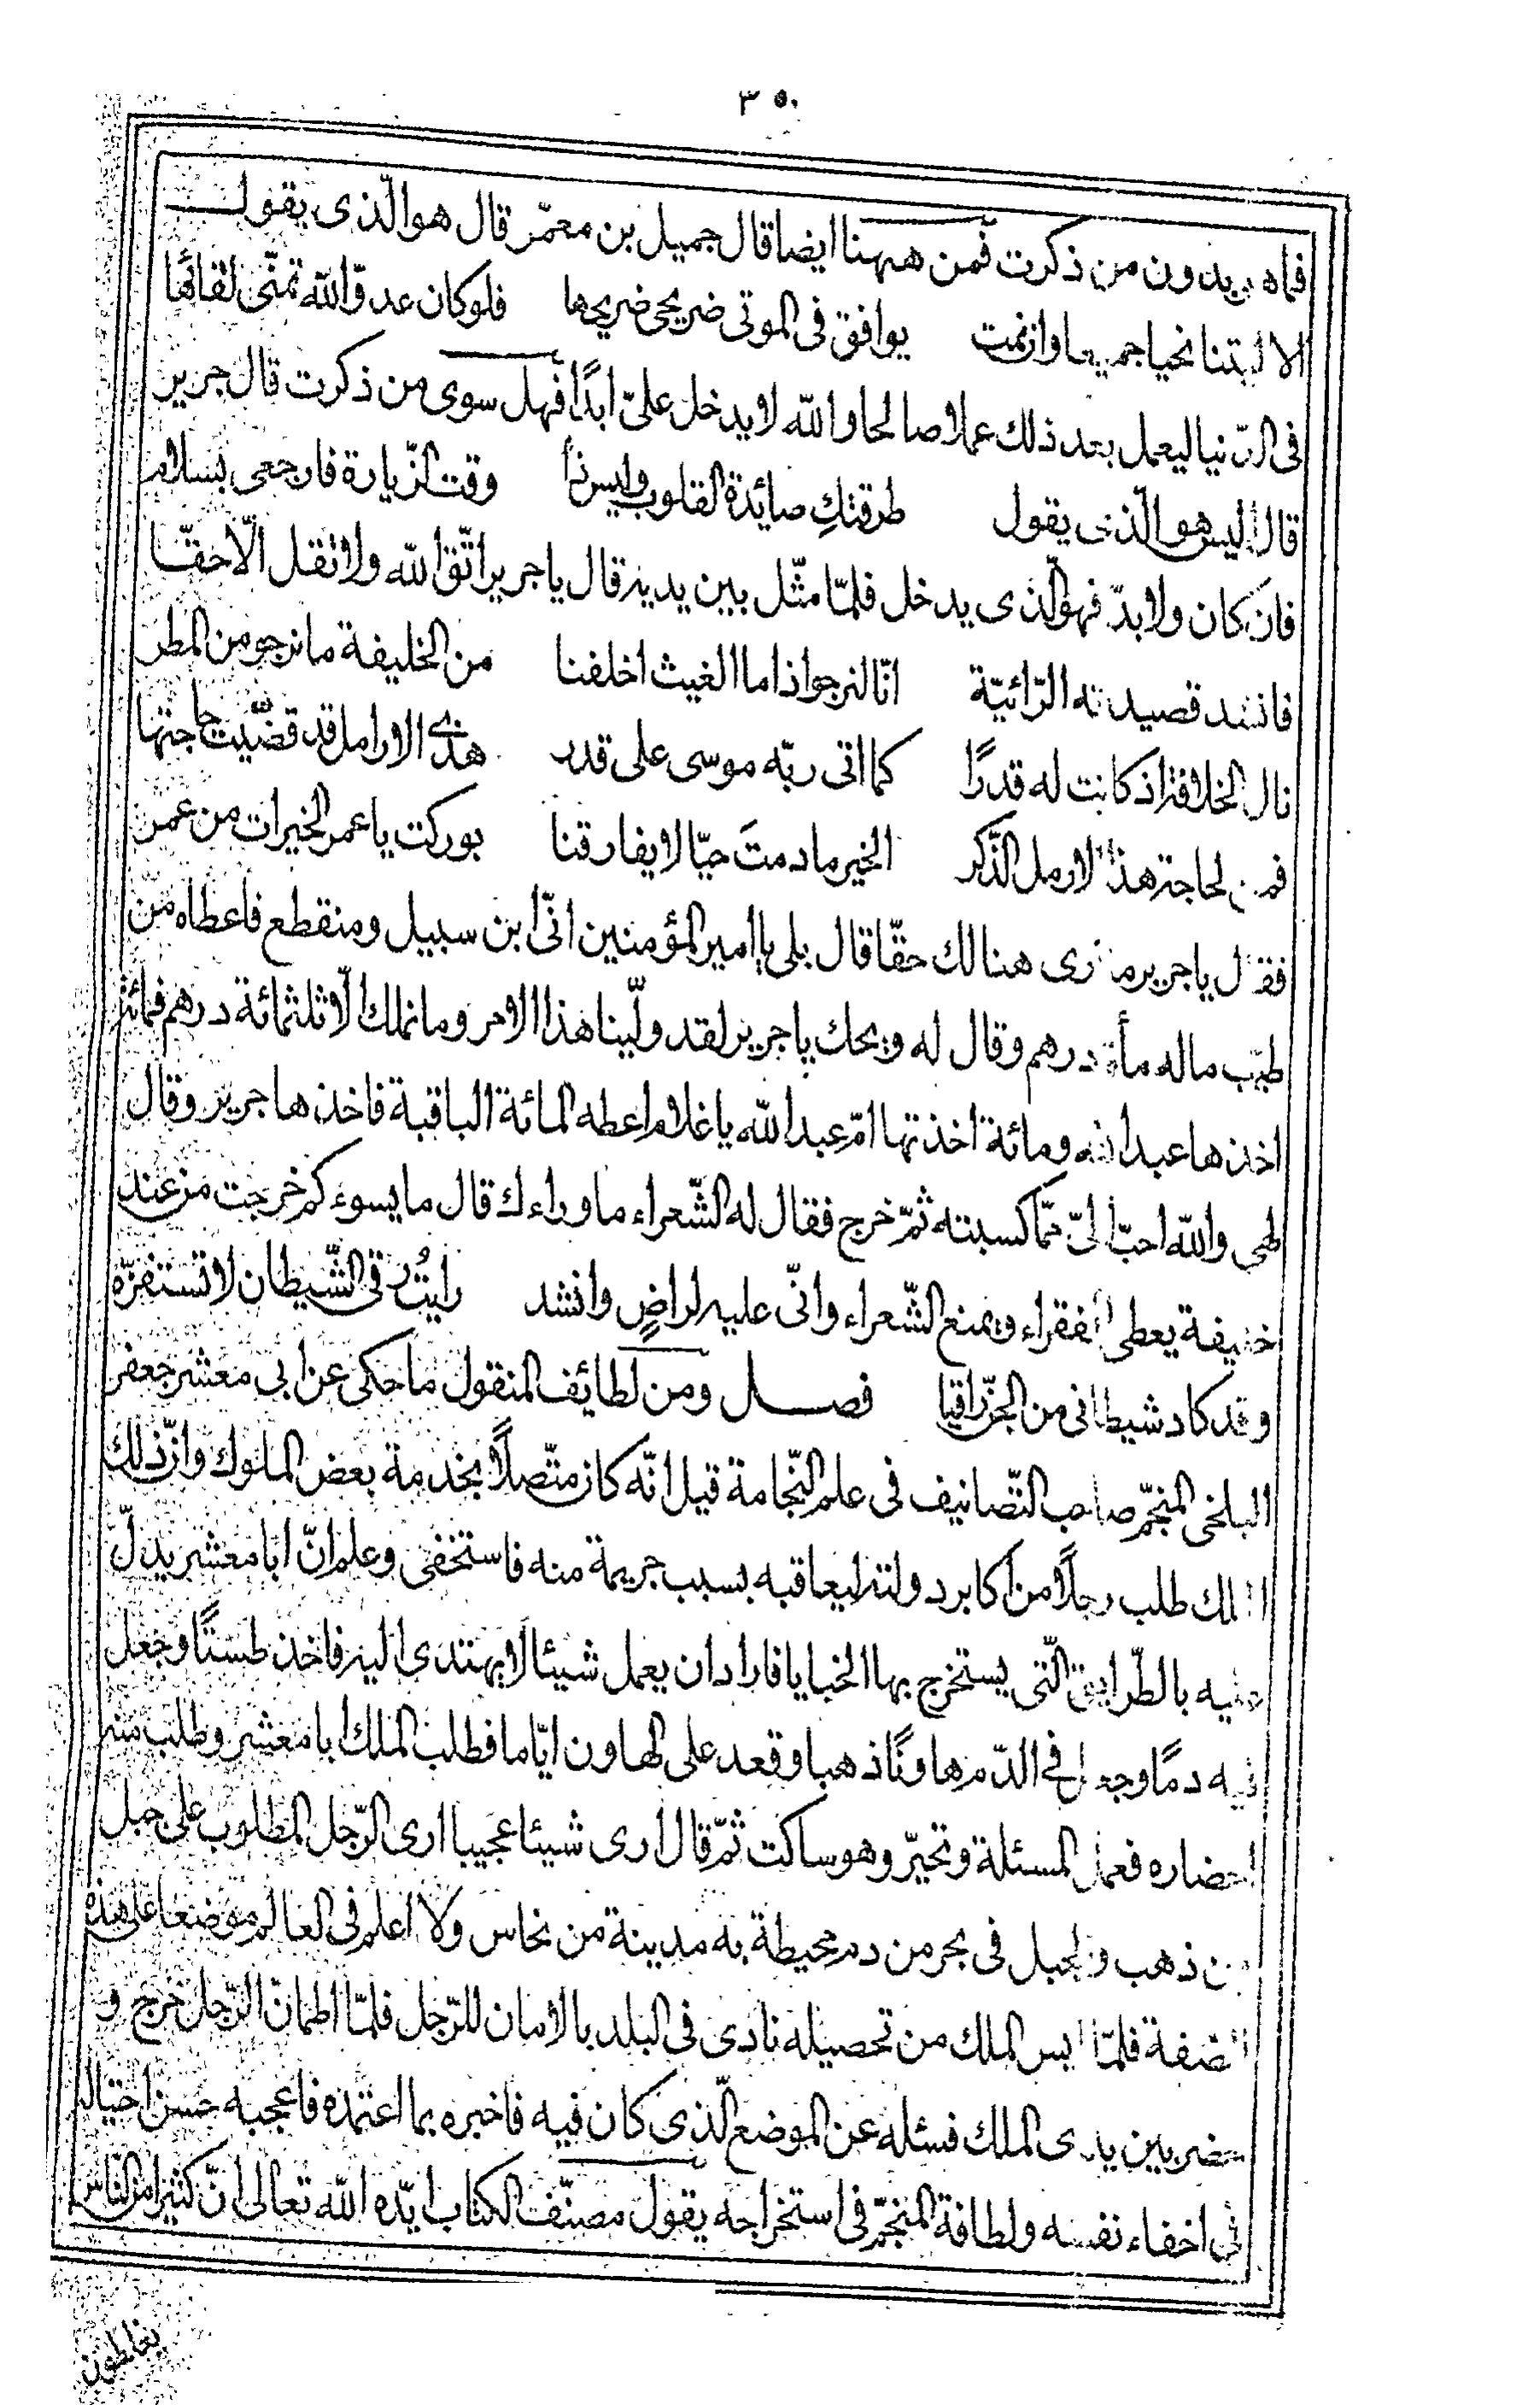 ٣٥٠
فماه يريدون من ذكرت فمن ههنا ايضا قال جميل بن معمّر قال هو الّذى يقول
الا ليتنا نحيا جميعا وان نمت يوافق فى الموتى ضريحى ضريحها فلو كان عدوّ الله تمنّى لقائها
فى الدّنيا ليعمل بعد ذلك عملا صالحا والله لا يدخل علىّ ابدًا فهل سوى من ذكرت قال جرير
قال اليس هو الّذى يقول طرقتكِ صائدة القلوب وليس ذا وقت الزّيارة فارجعى بسلام
فان كان ولا بدّ فهو الّذى يدخل فلمّا مثّل بين يديه قال يا جرير اتّق الله ولا تقل الّا حقّا
فانشد قصيدته الرّائيّة انّا لنرجو اذا ما الغيث اخلفنا من الخليفة ما نرجو من المطر
نال الخلافة اذ كانت له قدرًا كما اتى ربّه موسى على قدر هذى الارامل قد قضّيت حاجتها
فمن لحاجة هذا الارمل الذّكر الخير ما دمتَ حيّا لا يفارقنا بوركت يا عمر الخيرات من عمر
فقال يا جرير ما ارى هنا لك حقّا قال بلى يا امير المؤمنين انّى ابن سبيل ومنقطع فاعطاه من
طيّب ماله مأة درهم وقال له ويحك يا جرير لقد ولّينا هذا الامر وما نملك الّا ثلثمائة درهم فمائة
اخذها عبد الله ومائة اخذتها امّ عبد الله يا غلام اعطه المائة الباقية فاخذها جرير وقال
لهى والله احبّ الىّ ممّا كسبته ثمّ خرج فقال له الشّعراء ما وراءك قال ما يسوءكم خرجت من عند
خليفة يعطى الفقراء ويمنع الشّعراء وانّى عليه لراضٍ وانشد رايتُ رقى الشّيطان لا تستفزّه
وقد كاد شيطانى من الجنّ راقيا فصل ومن لطائف المنقول ما حكى عن ابى معشر جعفر
البلخى المنجّم صاحب التّصانيف فى علم النّجامة قيل انّه كان متّصلًا بخدمة بعض الملوك وانّ ذلك
الملك طلب رجلًا من اكابر دولته ليعاقبه بسبب جريمة منه فاستخفى وعلم انّ ابا معشر يدلّ
عليه بالطّرايق الّتى يستخرج بها الخبايا فاراد ان يعمل شيئا لا يهتدى اليه فاخذ طستًا وجعل
فيه دمًا وجعل فى الدّم هاونًا ذهبا وقعد على الهاون ايّاما فطلب الملك ابا معشر وطلب منه
احضاره فعمل المسئلة وتحيّر وهو ساكت ثمّ قال ارى شيئا عجيبا ارى الرّجل المطلوب على جبل
من ذهب والجبل فى بحر من دم محيطة به مدينة من نحاس ولا اعلم فى العالم موضعا على هذه
الصّفة فلمّا ايس الملك من تحصيله نادى فى البلد بالامان للرّجل فلمّا اطمانّ الرّجل خرج و
حضر بين يدى الملك فسئله عن الموضع الّذى كان فيه فاخبره بما اعتمده فاعجبه حسن احتياله
فى اخفاء نفسه ولطافة المنجّم فى استخراجه يقول مصنّف الكتاب ايّده الله تعالى انّ كثيرا من النّاس
يغالطون